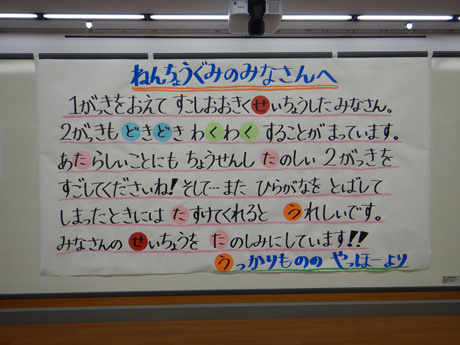 ねんちょうぐみのみなさんへ
1がっきをおえて すこしおおきく せいちょうしたみなさん。
2がっきも どきどき わくわく することが まっています。
あたらしいことにも ちょうせんし たのしい 2がっきを
すごしてくださいね! そして…また ひらがなを とばして
しまったときには たすけてくれると うれしいです。
みなさんの せいちょうを たのしみにしています!!
うっかりものの やっほーより